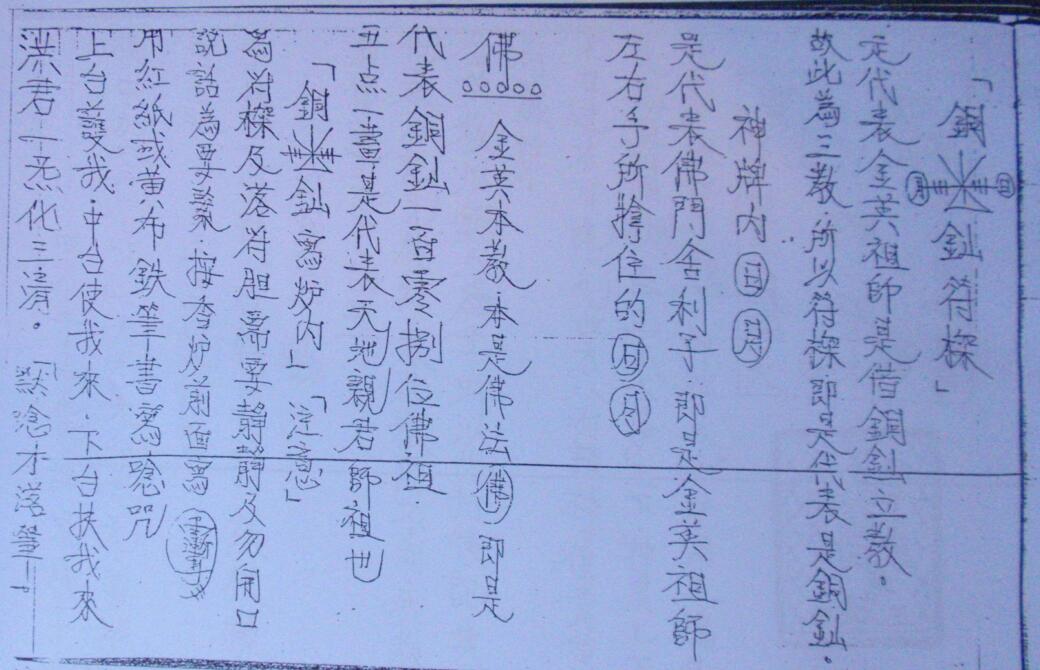 「銅釟符樑」
日 月
定代表金英祖師是借銅釟立教。
故此為三教．所以符樑即是代表是銅釟．
神牌內 日 月
是代表佛門舍利子．即是金英祖師
左右手所撐住的 日 月
佛 金英本教．本是佛法佛．即是
代表銅釟一百零捌位佛祖
五点一畫是代表天地親君師祖也
「銅釟寫炉內」「注意」
寫符樑及落符胆需要靜及勿開口
說話為要緊．按香炉前面寫
用紅紙或黃布鉄等書寫唸咒
上台發我．中台使我來．下台扶我來
洪君一炁化三清． 唸才落筆